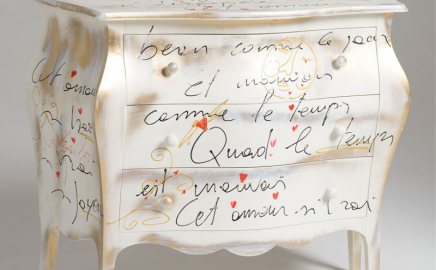 beau comme le jour
et mauvais
comme le temps
Quad le temps
est mauvais
Cet amour si vrai
Cet amour